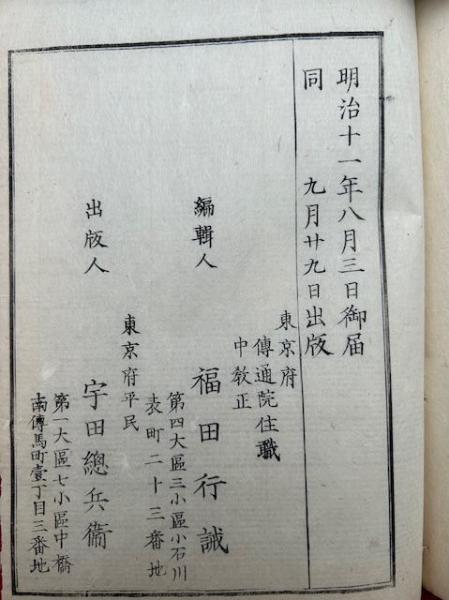 明治十一年八月三日御届
同 九月廿九日出版
東京府
傳通院住職
中教正
編輯人 福田行誡
第四大區三小區小石川
表町二十三番地
東京府平民
出版人 宇田總兵衞
第一大區七小區中橋
南傳馬町壹丁目三番地